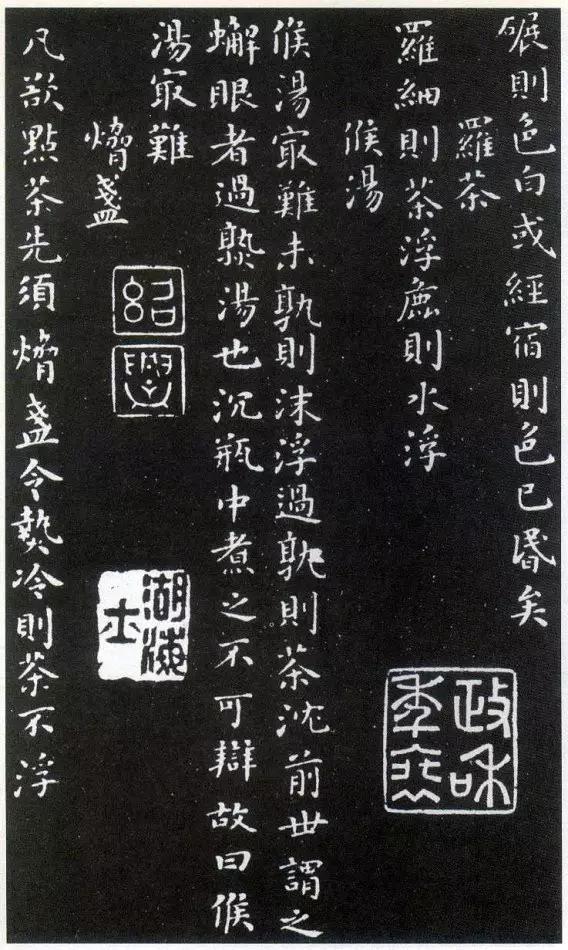 碾則色白或經宿則色已昬矣
羅茶
羅細則茶浮麁則水浮
候湯
候湯冣難未孰則沫浮過孰則茶沈前丗謂之
蠏眼者過孰湯也沉瓶中煮之不可辯故曰候
湯冣難
熁盞
紹興
湖海士
凡欲點茶先須熁盞令熱冷則茶不浮
政和